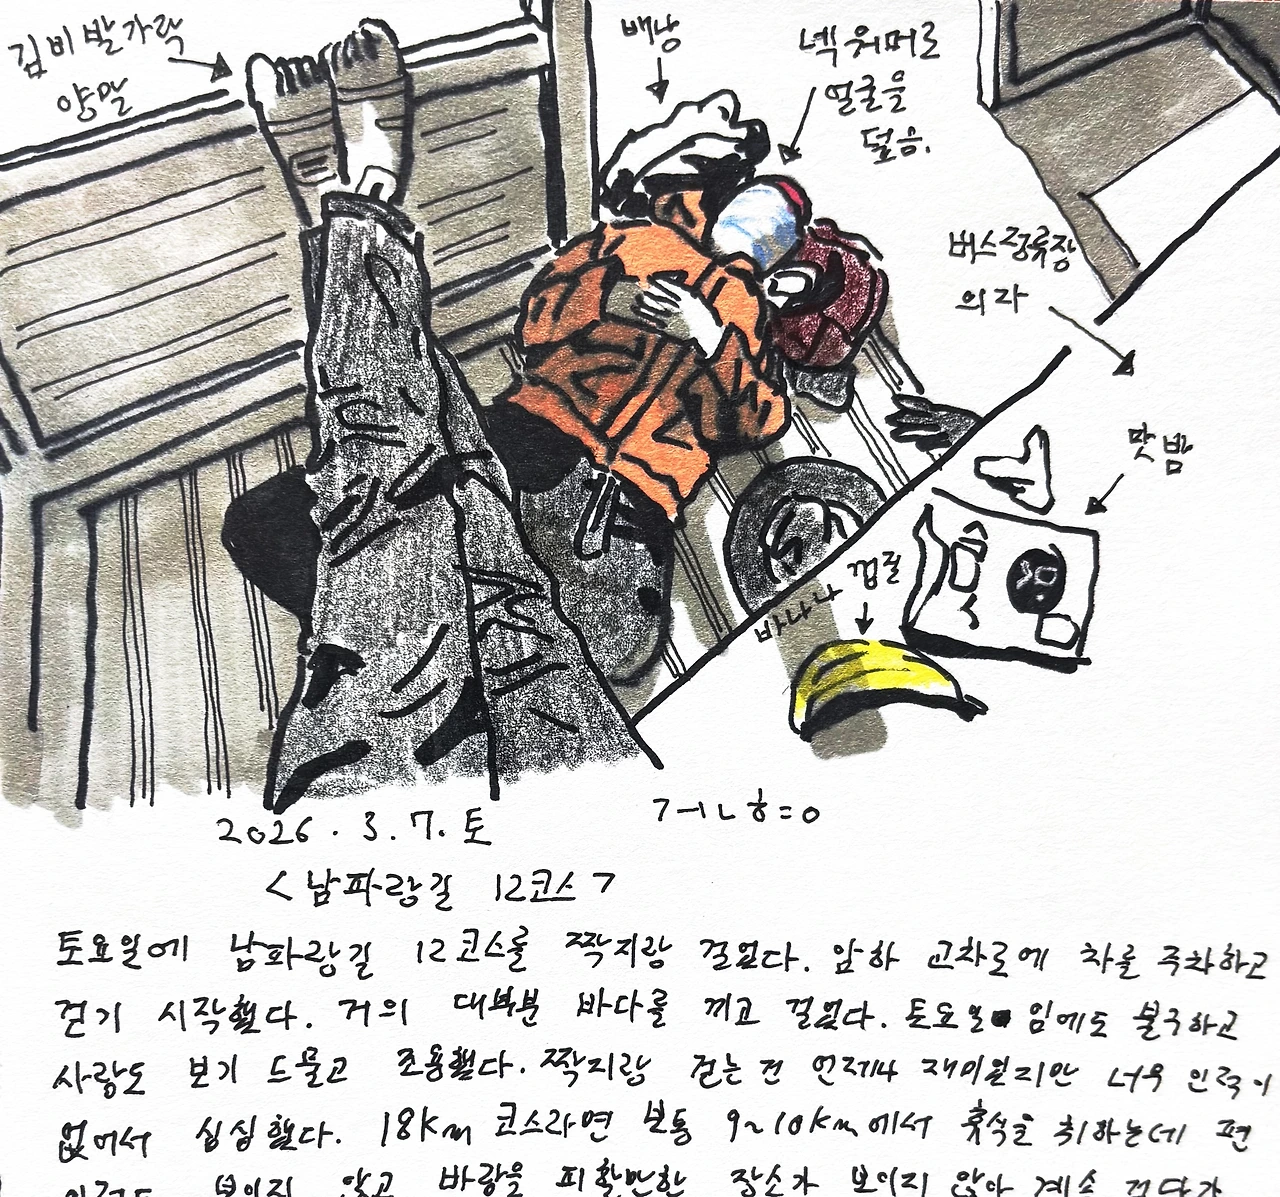 김비 발가락
양말
배낭
넥워머로
얼굴을
덮음.
버스정류장
의자
맛밤
바나나 껍질
2026. 3. 7. 토
<남파랑길 12코스>
토요일에 남파랑길 12코스를 짝지랑 걸었다. 암하 교차로에 차를 주차하고
걷기 시작했다. 거의 대부분 바다를 끼고 걸었다. 토요일 임에도 불구하고
사람도 보기 드물고 조용했다. 짝지랑 걷는 건 언제나 재미있지만 너무 인적이
없어서 심심했다. 18km 코스라면 보통 9~10km에서 휴식을 취하는데 편
보이지 않고 바람을 피할만한 장소가 보이지 않아 계속 걷다가